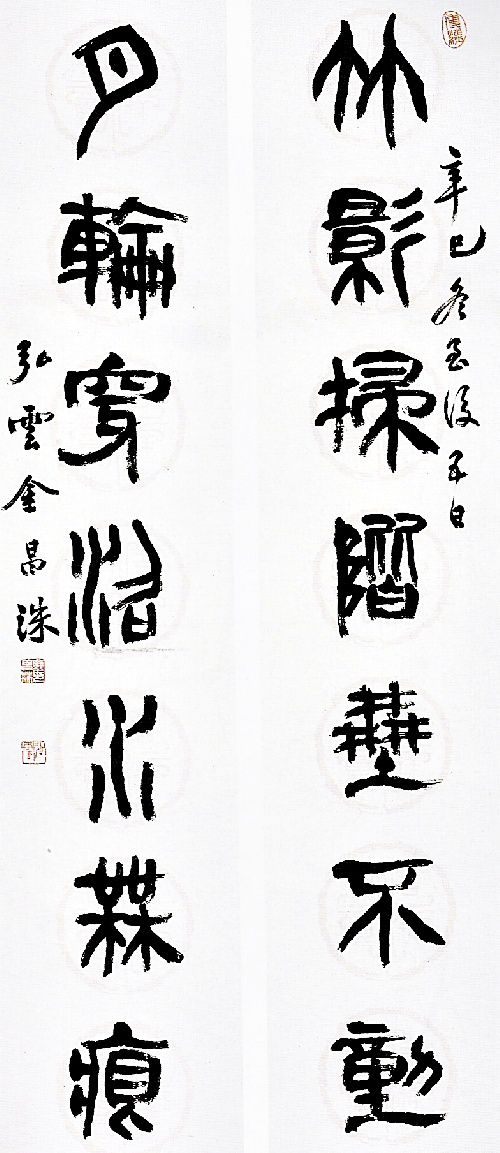 辛巳冬至後五日
竹影掃階塵不動
月輪穿沼水無痕
弘雲金昌洙